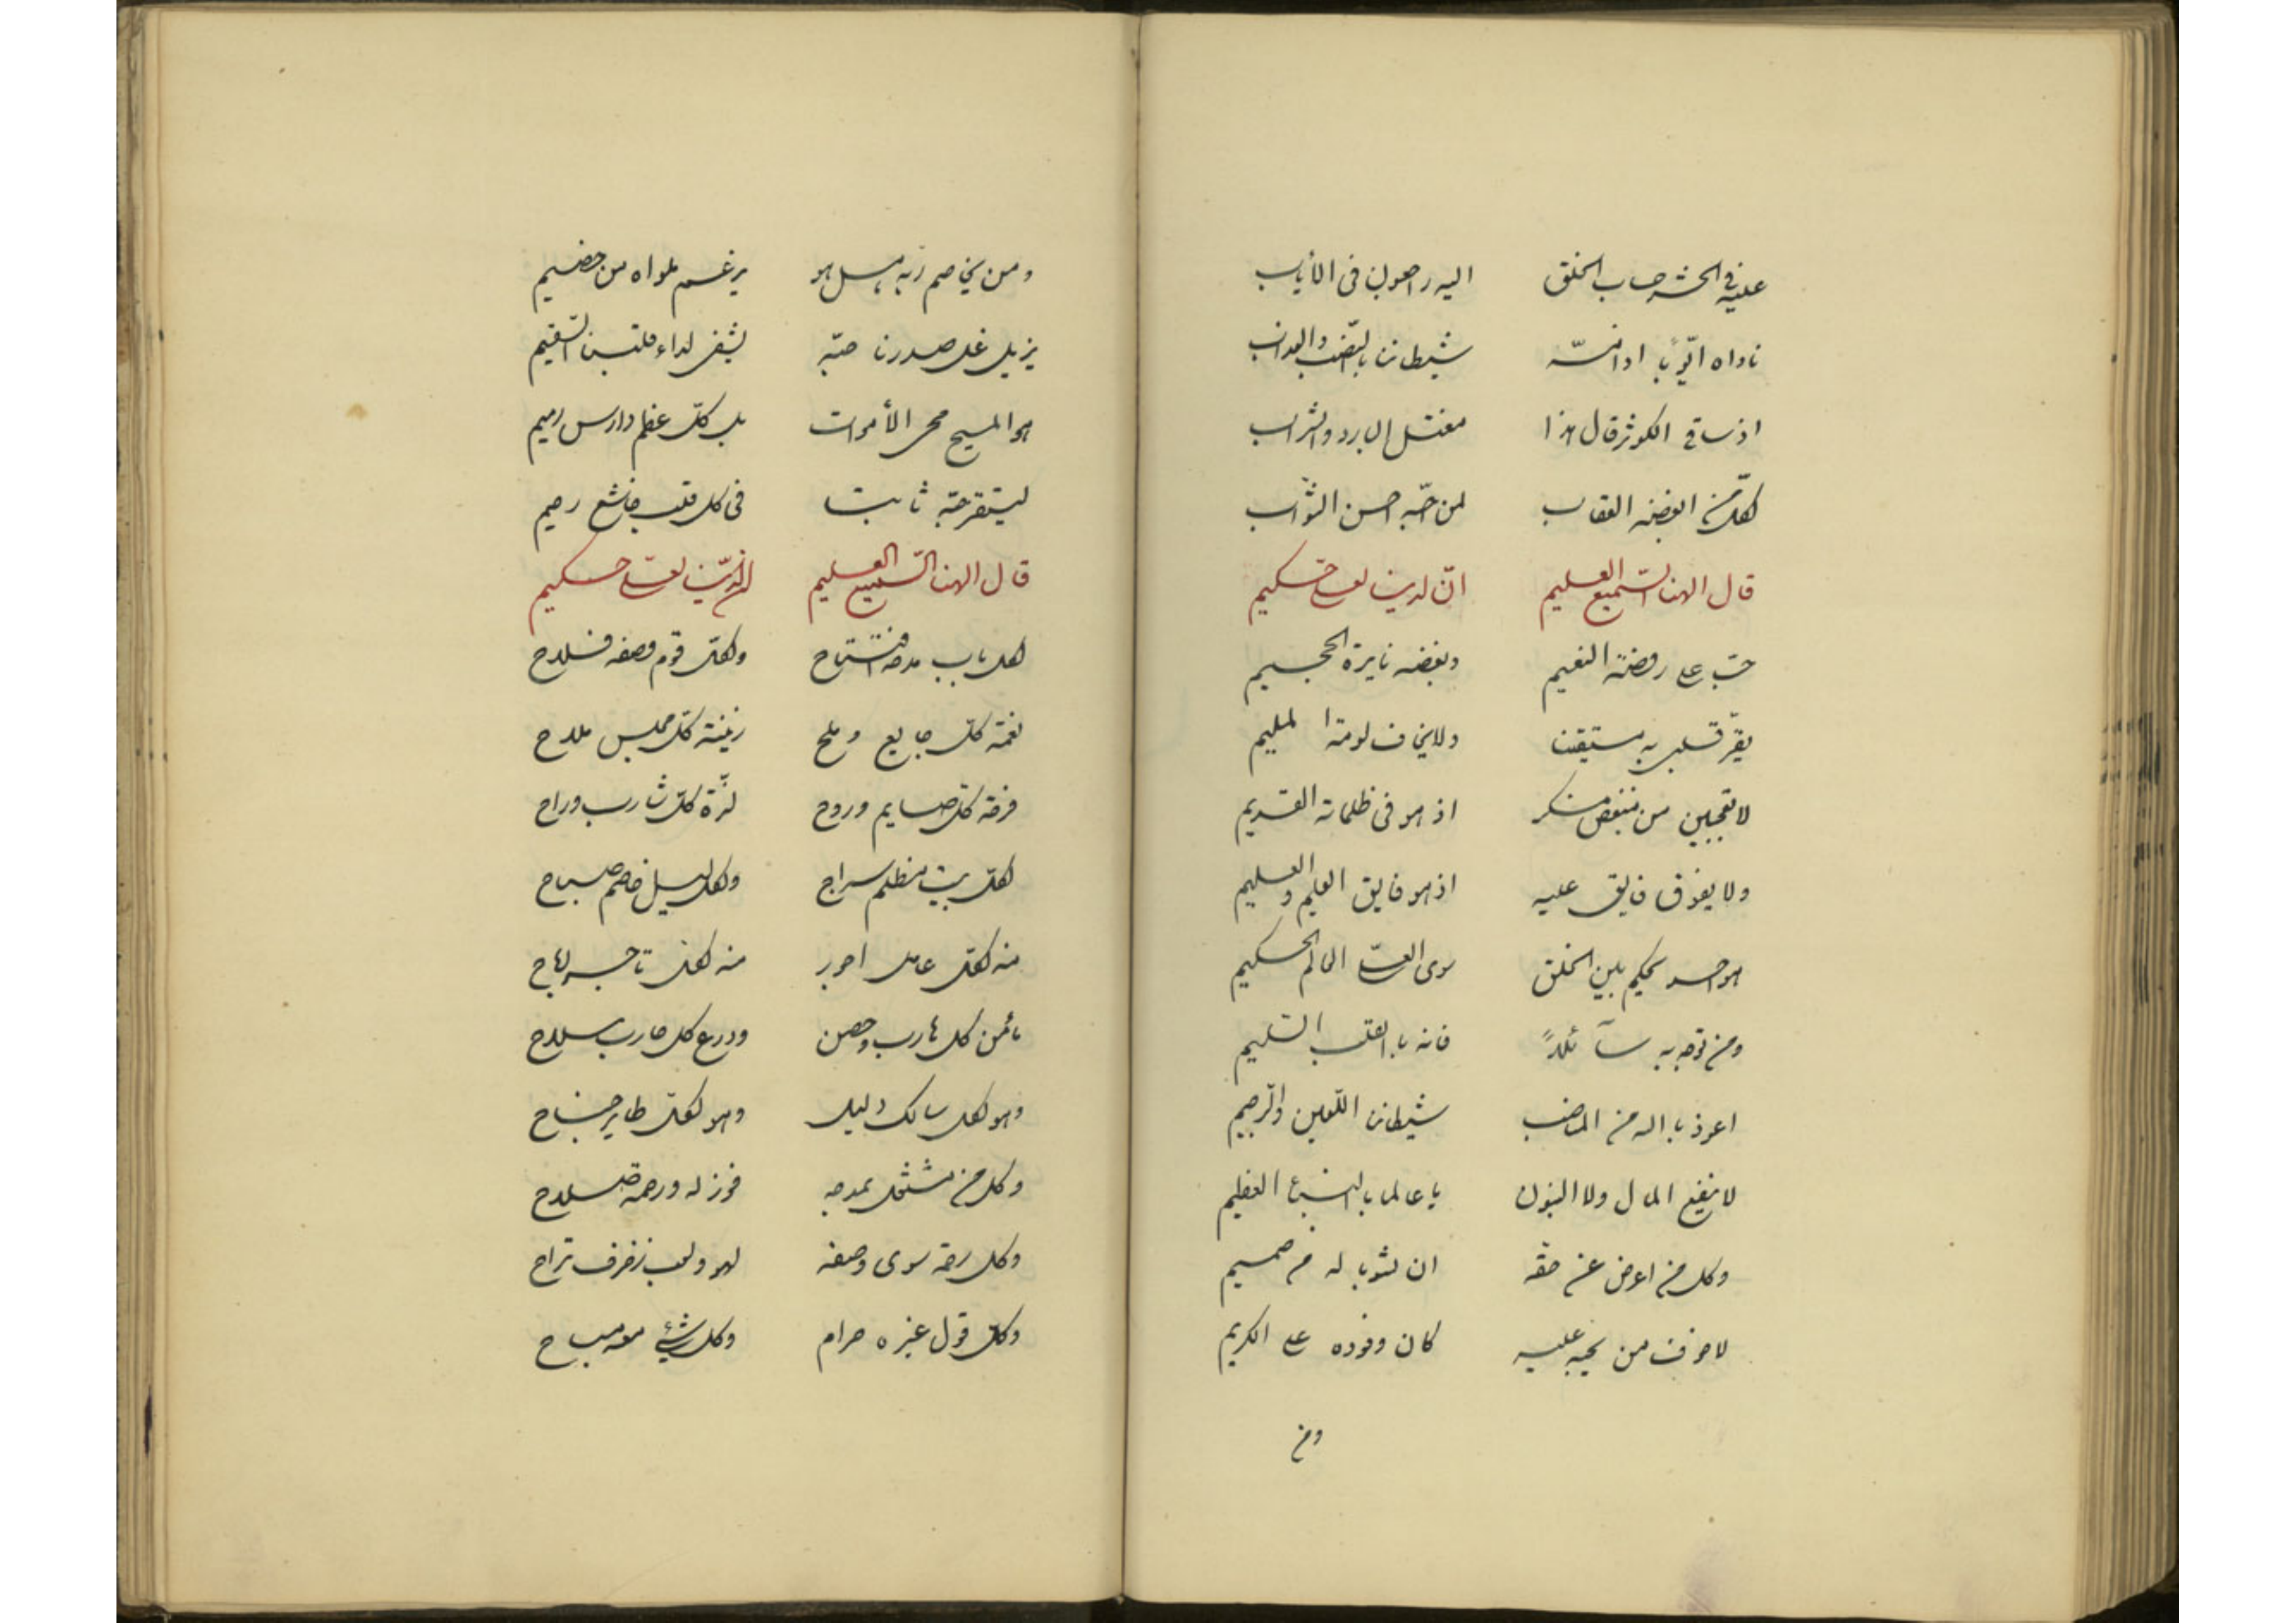 عليه في الحشر حساب الخلق اليه راجعون فى الأياب
ناداه ايّوب اذ امسّه شيطان بالنّصب والعذاب
اذ ساقى الكوثر قال هذا مغتسل البارد والشراب
لكلّ من ابغضه العقاب لمن احبّه حسن الثّواب
قال الهنا السّميع العليم انّ لدينا لعلىّ حكيم
حبّ على روضة النعيم وبغضه نايرة الجحيم
يقرّ قلبى به مستيقنا ولا يخاف لومة المليم
لا تعجبين من مبغض منكر اذ هو فى ظلماته القديم
ولا يفوق فايق عليه اذ هو فايق العليم والعليم
يحكم بين الخلق سوى العلىّ الحاكم الحكيم
ومن توجه به سآئلاً فانه بالقلب السليم
اعوذ بالله من شيطان اللّعين والرّجيم
لا ينفع المال ولا البنون يا عالما بالنبأ العظيم
وكل من اعرض عن حقّه من حميم
لا خوف من يحبه عليه كان وفوده على الكريم
ومن
ومن يخاصم ربه
يزيل غل صدرنا حبّه يشفى لداء قلبنا السّقيم
هو المسيح محى الأموات بل كلّ عظم دارس رميم
ليستقر حبّه ثابتا فى كل قلب خاشع رحيم
قال الهنا السّميع العليم لدينا لعلىّ حكيم
لكل باب مدحه افتتاح ولكلّ قوم وصفه فلاح
نغمة كلّ جايع وملح زينة كلّ مجلس ملاح
فرحة كلّ صايم وروح لذّة كلّ شارب وراح
لكلّ بيت مظلم سراج ولكل ليل صباح
منه لكلّ عامل اجور منه لكلّ تاجر
مأمن كل هارب وحصن ودرع كل حارب سلاح
وهو لكل سالك دليل وهو لكلّ طاير جناح
وكل من مشتغل بمدحه فوز له ورحمة صلاح
وكل سوى وصفه لهو ولعب زخرف تراح
وكل قول غيره حرام وكل شيئ مباح